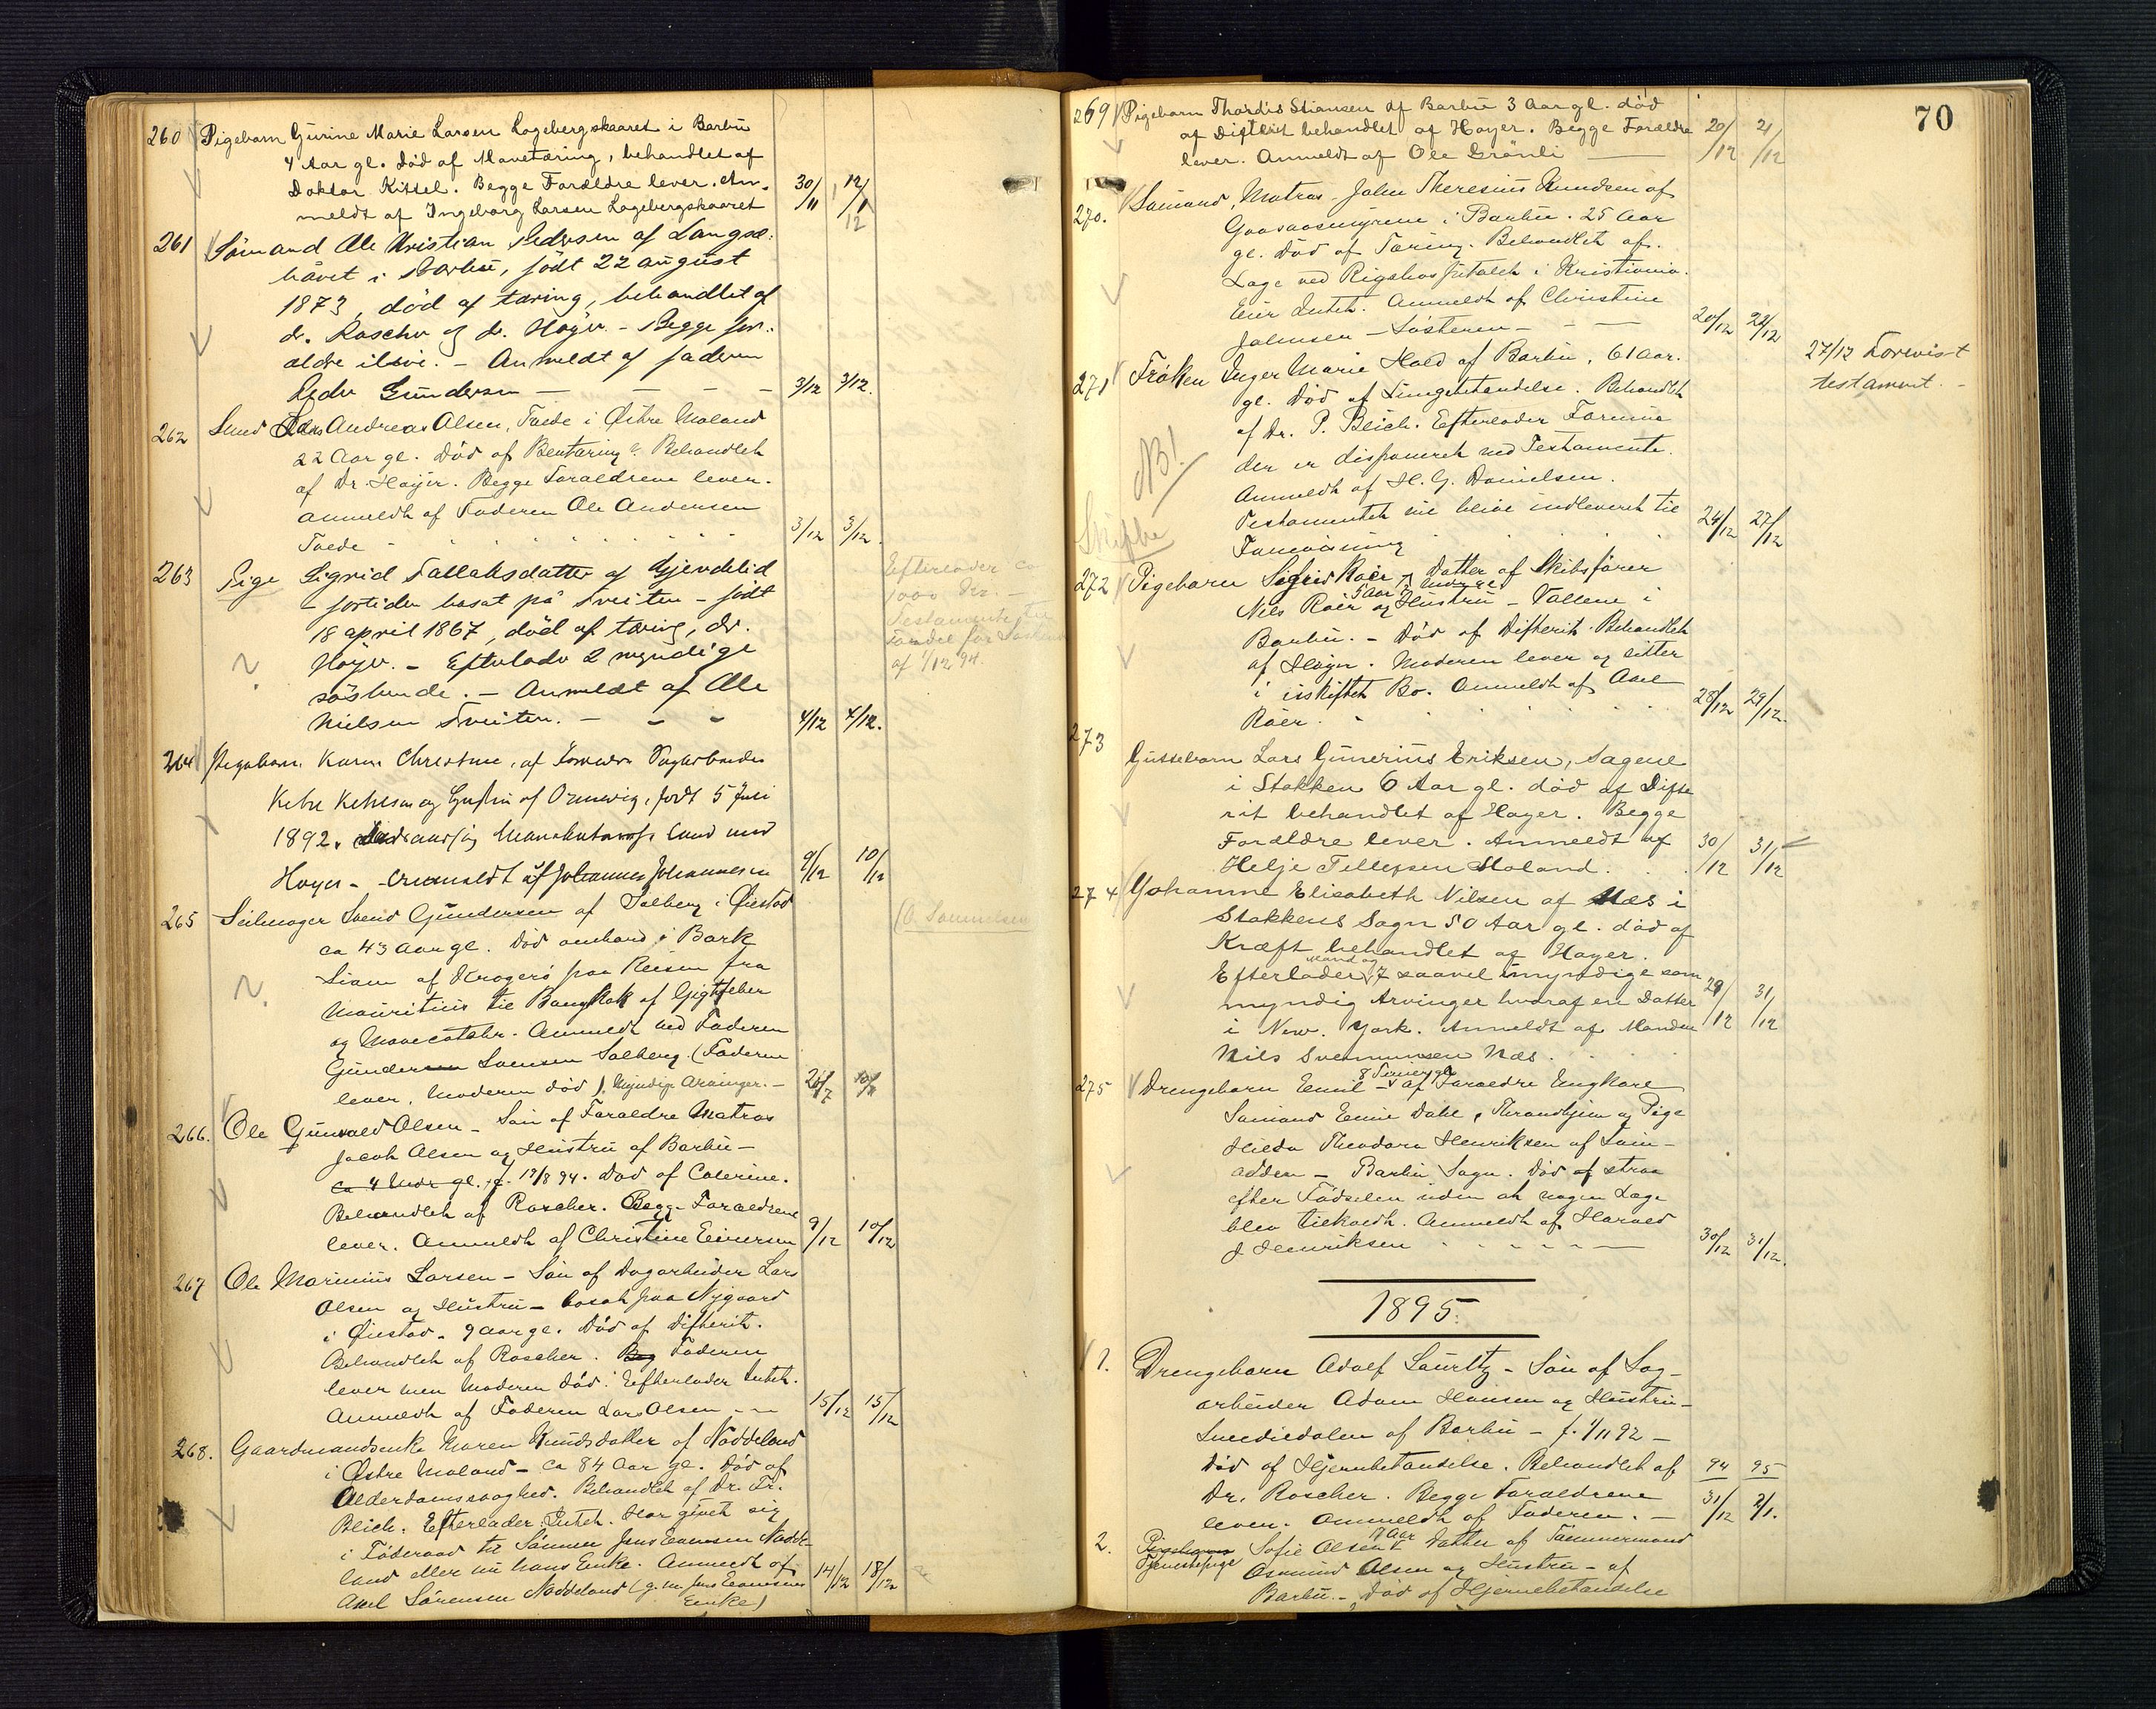 260 Pigebarn Gurine Marie Larsen Lagebergskaaret i Barbu
4 Aar gl. Død af Mavetæring, behandlet af
Doktor Kissel. Begge Forældre lever. An-
meldt af Ingeborg Larsen Lagebergskaaret 30/11 12/12
261 Sömand Ole Kristian Pedersen af Langsæ-
hâvet i Barbu, födt 22 august
1873, död af tæring, behandlet af
dr. Roscher og dr. Höyer. - Begge for-
ældre ilive. - Anmeldt af faderen
Peder Gundersen - - - - 3/12 3/12.
262 Lars Andreas Olsen, Tvede i Østre Moland
22 Aar gl. Död af Bentæring. Behandlet
af Dr. Höyer. Begge Forældrene lever.
Anmeldt af Faderen Ole Andersen
Tvede 3/12 3/12.
263 Pige Sigrid Tallaksdatter af Gjendelid
- fortiden bosat på Tveiten - födt
18 april 1867, död af tæring, dr.
Höyer. - Efterlader 2 myndige
söskende. - Anmeldt af Ole
Nielsen Tveiten. - - - 4/12 4/12.
Efterlader ca
1000 Kr. -
Testamente
af 1/12 94.
264 Pigebarn Karen Christine, af Forældre
og Hustru af født 5 Juli
1892.
Hoyer - Anmeldt af Johannes Johannesen 9/12 10/12
265 Seilmager Svend Gundersen af Solberg i Øiestad
ca 43 Aar gl. Död ombord i Bark
Siam af Kragerö paa Reisen fra
Mauritius til Bangkok af Gigtfeber
og Mavecatahr. Anmeldt ved Faderen
Gunder Svensen Solberg. (Faderen
lever, Moderen död). Myndige Arvinger. - 26/7
266. Ole Gunvald Olsen - Sön af Forældre Matros
Jacob Olsen og Hustru af Barbu -
ca 4 Mdr gl. f. 19/8 94. Död af Colerine.
Behandlet af Roscher. Begge Forældrene
lever. Anmeldt af Christine Einersen 9/12 10/12
267 Ole Marinius Larsen - Sön af Dagarbeider Lars
Olsen og Hustru - bosat paa Nygaard
i Øiestad. 9 Aar gl. Död af Difterit.
Behandlet af Roscher. Beg Faderen
lever men Moderen död. Efterlader Intet.
Anmeldt af Faderen Lars Olsen 15/12 15/12
268. Gaardmandsenke Maren Knudsdatter af Naddeland
i Østre Moland - ca 84 Aar gl. Död af
Alderdomssvaghed. Behandlet af Dr. Fr.
Blich. Efterlader Intet. Har givet sig
i Föderaad til Sönnen Jens Evensen Nadde-
land eller nu hans Enke. Anmeldt af
Axel Sörensen Naddeland (g. m. Jens Evensens
Enke) 14/12 18/12
70
269 Pigebarn Thordis Stiansen af Barbu 3 Aar gl. död
af Difterit behandlet af Hoyer. Begge Forældre
lever. Anmeldt af Ole Grönli 20/12 21/12
270. Sömand, Matros John Theresius Knudsen af
Gaasaasmyrene i Barbu. 25 Aar
gl. Död af Tæring. Behandlet af
Læge ved Rigshospitalet i Kristiania.
Eier Intet. Anmeldt af Christine
Johnsen - Sösteren - - - 20/12 22/12
271 Fröken Inger Marie Hald af Barbu, 61 Aar
gl. Död af Lungebetændelse. Behandlet
af Dr. P. Blich. Efterlader Formue
der er disponeret ved Testamente.
Anmeldt af H. G. Danielsen.
Testamentet vil blive indleveret til
Forevisning 24/12 27/12
NB!
Skifte
27/12 Forevist
testament. -
272 Pigebarn Sigrid Röer, Datter af Skibsförer
5 Aar
Nils Röer og Hustru - Vallene i
Barbu. - Död af Difterit. Behandlet
af Höyer. Moderen lever og sitter
i uskiftet Bo. Anmeldt af Axel
Röer. 28/12 29/12.
273
Guttebarn Lars Gunerius Eriksen, Sagene
i Stokken 6 Aar gl. död af Difte
rit behandlet af Hoyer. Begge
Forældre lever. Anmeldt af
Helje Tellefsen Moland. 30/12 31/12
274 Johanne Elisabeth Nilsen af Næs i
Stokkens Sogn 50 Aar gl. död af
Kræft behandlet af Hoyer.
Mand og
Efterlader 7 saavel umyndige som
myndig Arvinger hvoraf en Datter
i New York. Anmeldt af Manden
Nils Svenumsen Næs. 29/12 31/12
275 8 Timer gl.
Drengebarn Emil - af Forældre Ungkarl
Sömand Emil Dahl, Throndhjem og Pige
Hilda Theodora Henriksen af
odden - Barbu Sogn. Död af strax
efter Födselen uden at nogen Læge
blev tilkaldt. Anmeldt af Harald
J. Henriksen 30/12 31/12.
1895.
1. Drengebarn Adolf Lauritz - Sön af Sag-
arbeider Adam Hansen og Hustru -
Smediedalen af Barbu - f. 1/11 92 -
Död af Hjernebetændelse. Behandlet af 94 95
Dr. Roscher. Begge Forældrene
lever. Anmeldt af Faderen. - 31/12 2/1.
2. Pigebarn Sofie Olsen Datter af Tömmermand
Tjenestepige Osmund Olsen og Hustru - af
Barbu. - Död af Hjernebetændelse